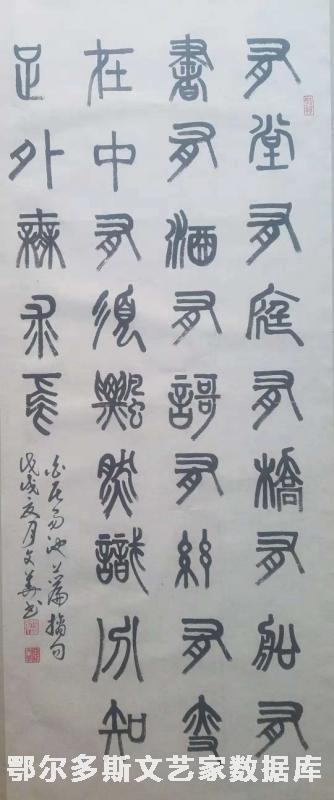 有堂有庭有橋有船有
書有酒有謌有絃有叟
在中有須飄然識分知
足外無求焉
白居易池上篇摘句
戊戌夏月文書
鄂尔多斯文艺家数据库